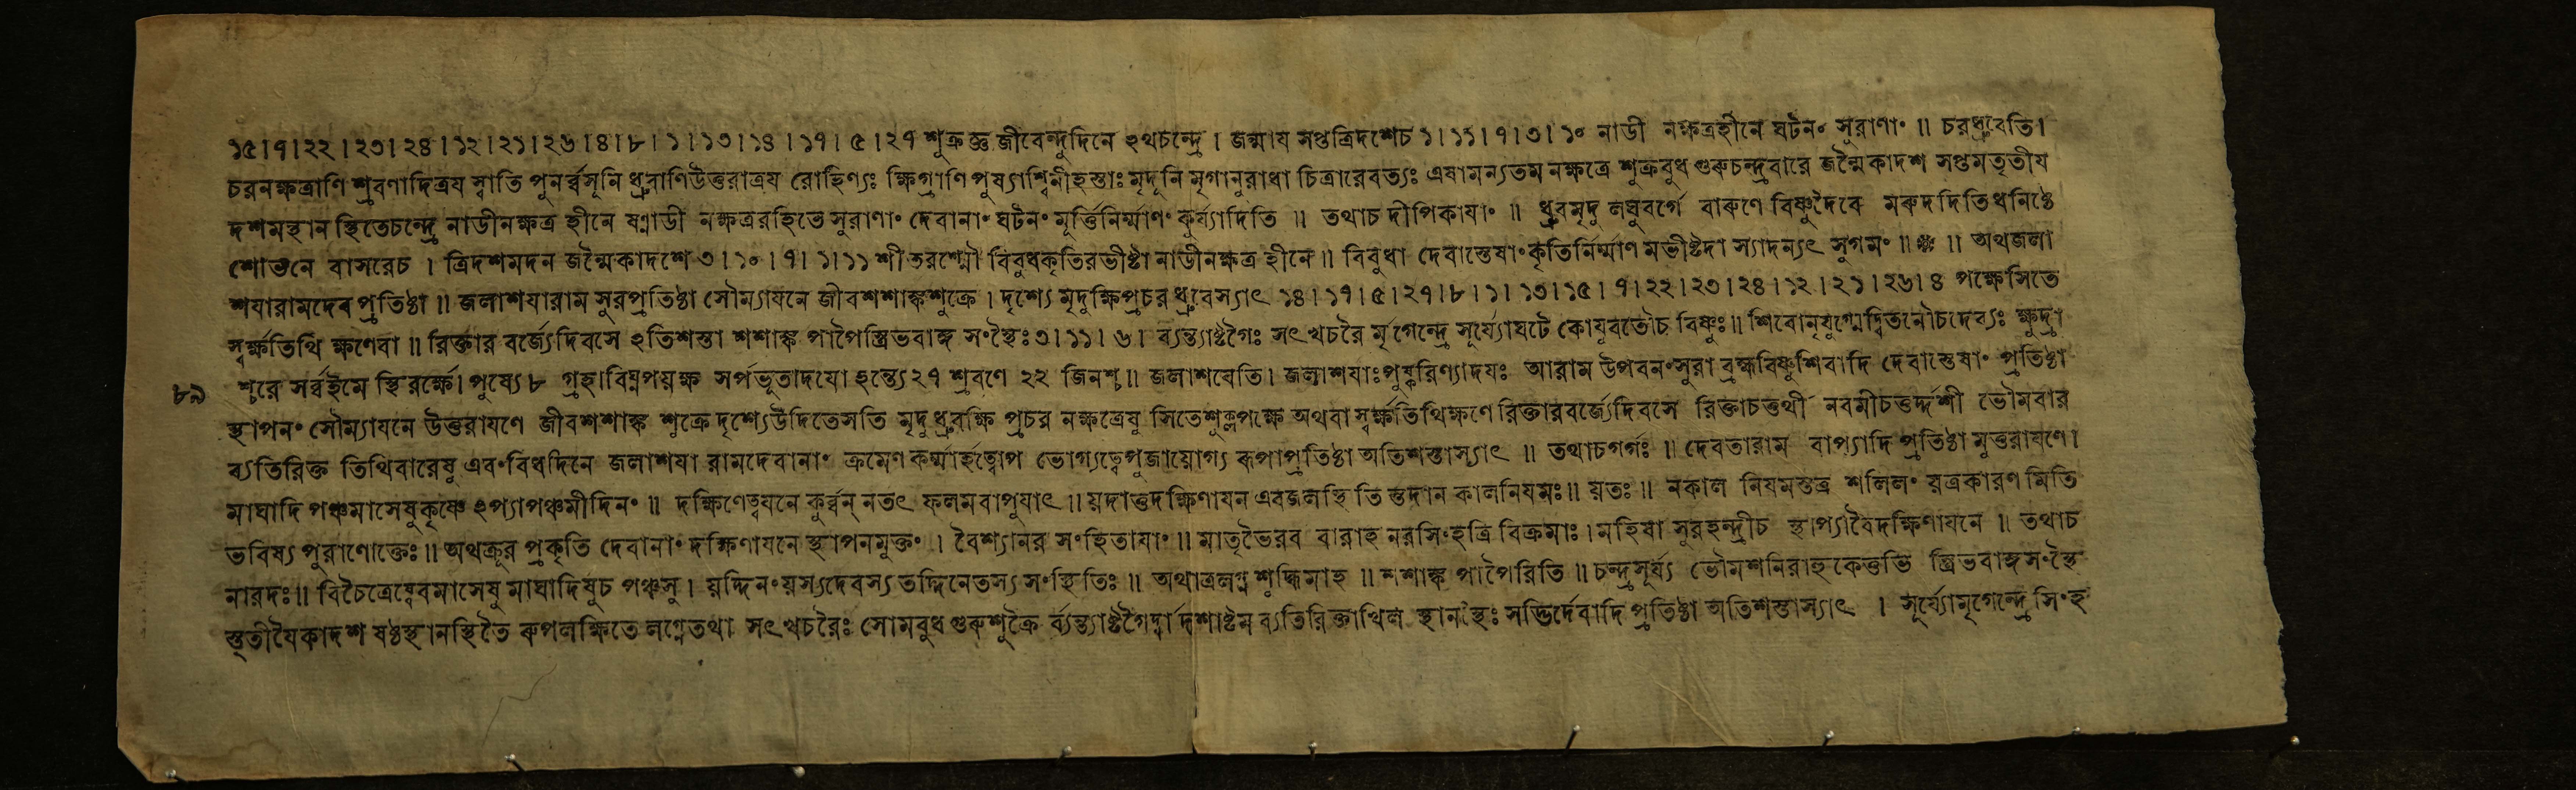 ১৫।৭।২২।২৩।২৪।১২।২১।২৬।৪।৮।১।১৩।১৪।১৭।৫।২৭ শুক্রজ্ঞ জীবেন্দুদিনে ঽথচন্দ্রে। জন্মায সপ্তত্রিদশেচ ১।১১।৭।৩।১০ নাডী নক্ষত্রহীনে ঘটনং সুরাণাং॥ চরধ্রুবেতি।
চরনক্ষত্রাণি শ্রবণাদিত্রয স্বাতি পুনর্ব্বসূনি ধ্রুবাণিউত্তরাত্রয রোহিণ্যঃ ক্ষিপ্রাণি পুষ্যাশ্বিনীহস্তাঃ মৃদূনি মৃগানুরাধা চিত্রারেবত্যঃ এষামন্যতম নক্ষত্রে শুক্রবুধ গুরুচন্দ্রবারে জন্মৈকাদশ সপ্তমতৃতীয
দশমস্থান স্থিতেচন্দ্রে নাডীনক্ষত্র হীনে ষণ্নাডী নক্ষত্ররহিতে সুরাণাং দেবানাং ঘটনং মূর্ত্তিনির্ম্মাণং কুর্য্যাদিতি॥ তথাচ দীপিকাযাং॥ ধ্রুবমৃদু লঘুবর্গে বারুণে বিষ্ণুদৈবে মরুদদিতিধনিষ্ঠে
শোভনে বাসরেচ। ত্রিদশমদন জন্মৈকাদশে ৩।১০।৭।১।১১ শীতরশ্মৌ বিবুধকৃতিরভীষ্টা নাডীনক্ষত্র হীনে॥ বিবুধা দেবাস্তেষাং কৃতির্নির্ম্মাণ মভীষ্টদা স্যাদন্যৎ সুগমং॥ ॥ অথজলা
শযারামদেব প্রতিষ্ঠা॥ জলাশযারাম সুরপ্রতিষ্ঠা সৌম্যাযনে জীবশশাঙ্কশুক্রে। দৃশ্যে মৃদুক্ষিপ্রচরধ্রুবেস্যাৎ ১৪।১৭।৫।২৭।৮।১।১৩।১৫।৭।২২।২৩।২৪।১২।২১।২৬।৪ পক্ষেসিতে
স্বর্ক্ষতিথি ক্ষণেবা॥ রিক্তার বর্জ্যেদিবসে ঽতিশস্তা শশাঙ্ক পাপৈস্ত্রিভবাঙ্গ সংস্থৈঃ৩।১১।৬। ব্যন্ত্যাষ্টগৈঃ সৎখচরৈ র্মৃগেন্দ্রে সূর্য্যোঘটে কোযুবতৌচ বিষ্ণুঃ॥ শিবোনৃযুগ্মেদ্বিতনৌচদেব্যঃ ক্ষুদ্রা
৮৯ শ্চরে সর্ব্বইমে স্থিরর্ক্ষে। পুষ্যে ৮ গ্রহাবিঘ্নপযক্ষ সর্পভূতাদযো ঽন্ত্যে ২৭ শ্রবণে ২২ জিনশ্চ॥ জলাশযেতি। জলাশযাঃপুষ্করিণ্যাদযঃ আরাম উপবনংসুরা ব্রহ্মবিষ্ণুশিবাদি দেবাস্তেষাং প্রতিষ্ঠা
স্থাপনং সৌম্যাযনে উত্তরাযণে জীবশশাঙ্ক শুক্রে দৃশ্যেউদিতেসতি মৃদুধ্রুবক্ষি প্রচর নক্ষত্রেষু সিতেশুক্লপক্ষে অথবা স্বর্ক্ষতিথিক্ষণে রিক্তারবর্জ্যেদিবসে রিক্তাচতুর্থী নবমীচতুর্দ্দশী ভৌমবার
ব্যতিরিক্ত তিথিবারেষু এবংবিধদিনে জলাশযা রামদেবানাং ক্রমেণ কর্ম্মার্হত্বোপ ভোগ্যত্বেপূজাযোগ্য রূপাপ্রতিষ্ঠা অতিশস্তাস্যাৎ॥ তথাচগর্গঃ॥ দেবতারাম বাপ্যাদি প্রতিষ্ঠা মুত্তরাযণে।
মাঘাদি পঞ্চমাসেষুকৃষ্ণে ঽপ্যাপঞ্চমীদিনং॥ দক্ষিণেত্বযনে কুর্ব্বন্ নতৎ ফলমবাপ্নুযাৎ॥ যদাতুদক্ষিণাযন এবজলস্থিতি স্তদান কালনিযমঃ॥ যতঃ॥ নকাল নিযমস্তত্র শলিলং যত্রকারণ মিতি
ভবিষ্য পুরাণোক্তেঃ॥ অথক্রূর প্রকৃতি দেবানাং দক্ষিণাযনে স্থাপনমুক্তং। বৈশ্যানর সংহিতাযাং॥ মাতৃভৈরব বারাহ নরসিংহত্রি বিক্রমাঃ। মহিষা সুরহন্ত্রীচ স্থাপ্যাবৈদক্ষিণাযনে॥ তথাচ
নারদঃ॥ বিচৈত্রেষ্বেবমাসেষু মাঘাদিষুচ পঞ্চসু। যদ্দিনংযস্যদেবস্য তদ্দিনেতস্য সংস্থিতিঃ॥ অথাত্রলগ্ন শুদ্ধিমাহ॥ শশাঙ্ক পাপৈরিতি॥ চন্দ্রসূর্য্য ভৌমশনিরাহুকেতুভি স্ত্রিভবাঙ্গসংস্থৈ
স্তৃতীযৈকাদশ ষষ্ঠস্থানস্থিতৈ রুপলক্ষিতে লগ্নেতথা সৎখচরৈঃ সোমবুধ গুরুশুক্রৈ র্ব্যন্ত্যাষ্টগৈর্দ্বাদশাষ্টম ব্যতিরিক্তাখিল স্থানস্থৈঃ সদ্ভির্দেবাদি প্রতিষ্ঠা অতিশস্তাস্যাৎ। সূর্য্যোমৃগেন্দ্রে সিংহ